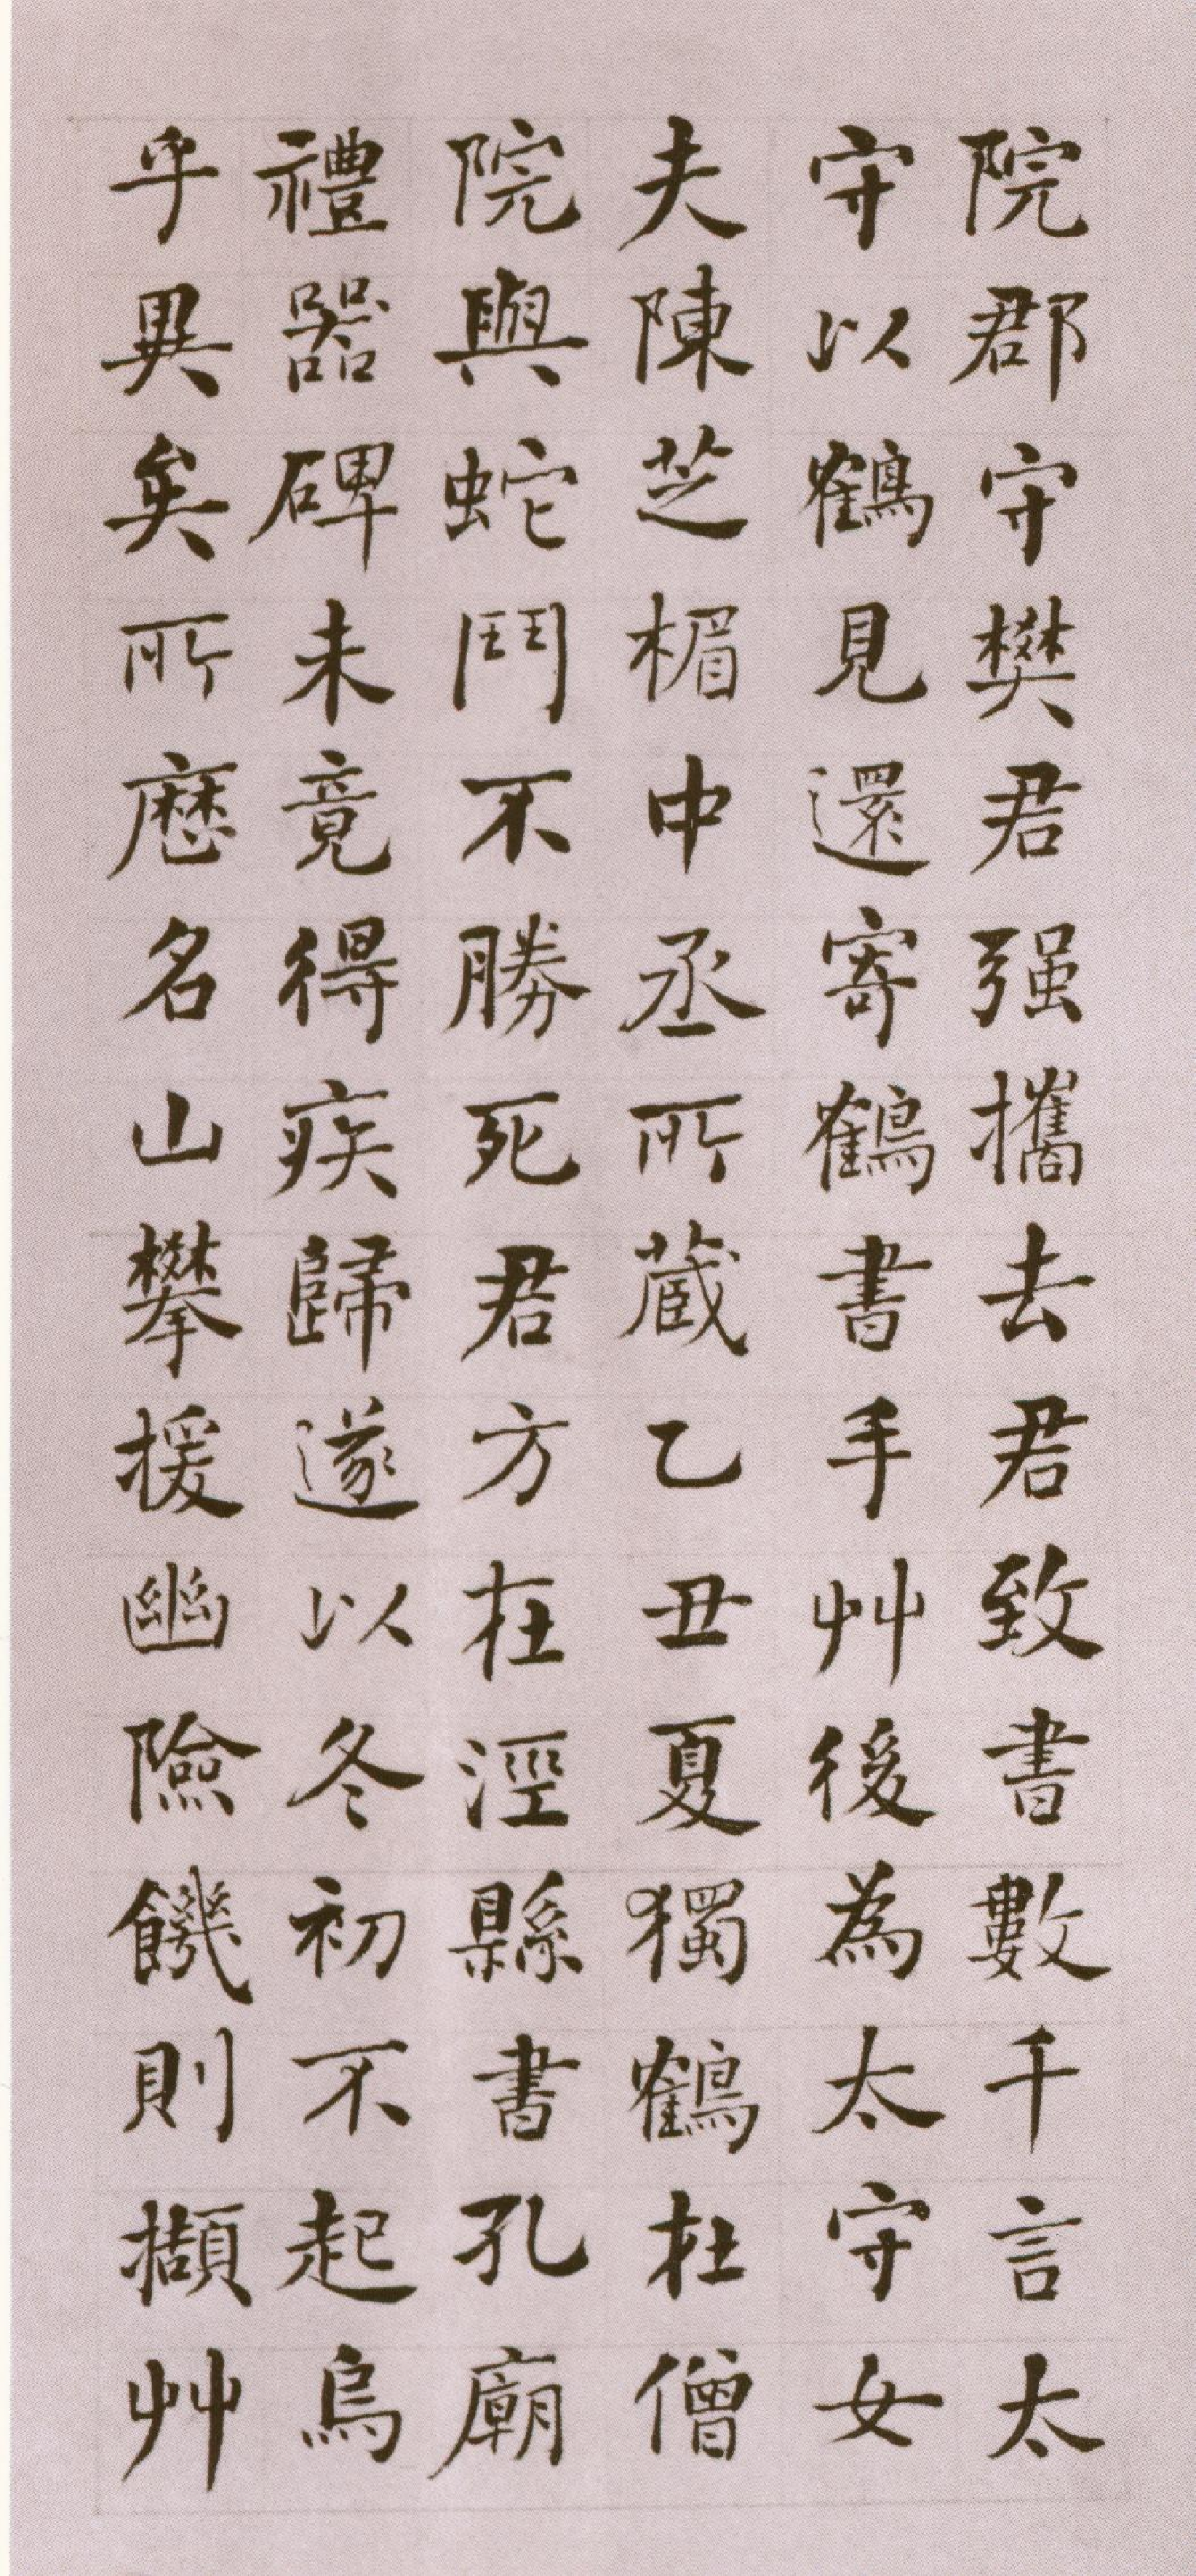 院郡守樊君强攜去君致書數千言太
守以鶴見還寄鶴書手艸後為太守女
夫陳芝楣中丞所蔵乙丑夏獨鶴杜僧
院與蛇鬥不勝死君方在涇縣書孔廟
禮器碑未竟得疾歸遂以冬初不起烏
乎異矣所歷名山攀援幽險饑則擷艸